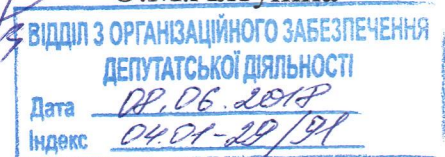 ВІДДІЛ З ОРГАНІЗАЦІЙНОГО ЗАБЕЗПЕЧЕННЯ
ДЕПУТАТСЬКОЇ ДІЯЛЬНОСТІ
Дата 08.06.2018
Індекс 04.01-29/91